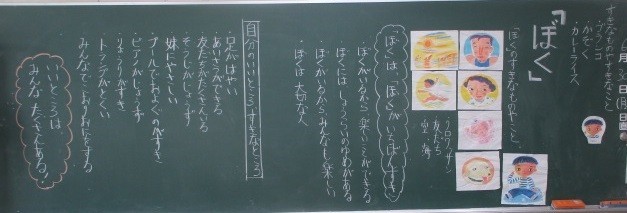 6月
日(月)
日直
すきなものやすきなこと
・ブランコ
・かぞく
・カレーライス
「ぼく」
「ぼくのすきなものやこと」
クロワッサン
友だち
空 海
「ぼく」は、「ぼく」がいちばんすき
ぼくがいるから楽しいことができる
ぼくには しょうらいのゆめがある
ぼくがいるから みんなも楽しい
・ぼくは 大切な人
自分のいいところ すきなところ
・足がはやい
・あいさつができる
・友だちをたくさんつくる
・そうじがじょうず
・妹にやさしい
・プールでおよぐのがすき
・ピアノがじょうず
りょうりがすき
トランプがとくい
みんなで
いいところは
みんな たくさんある。